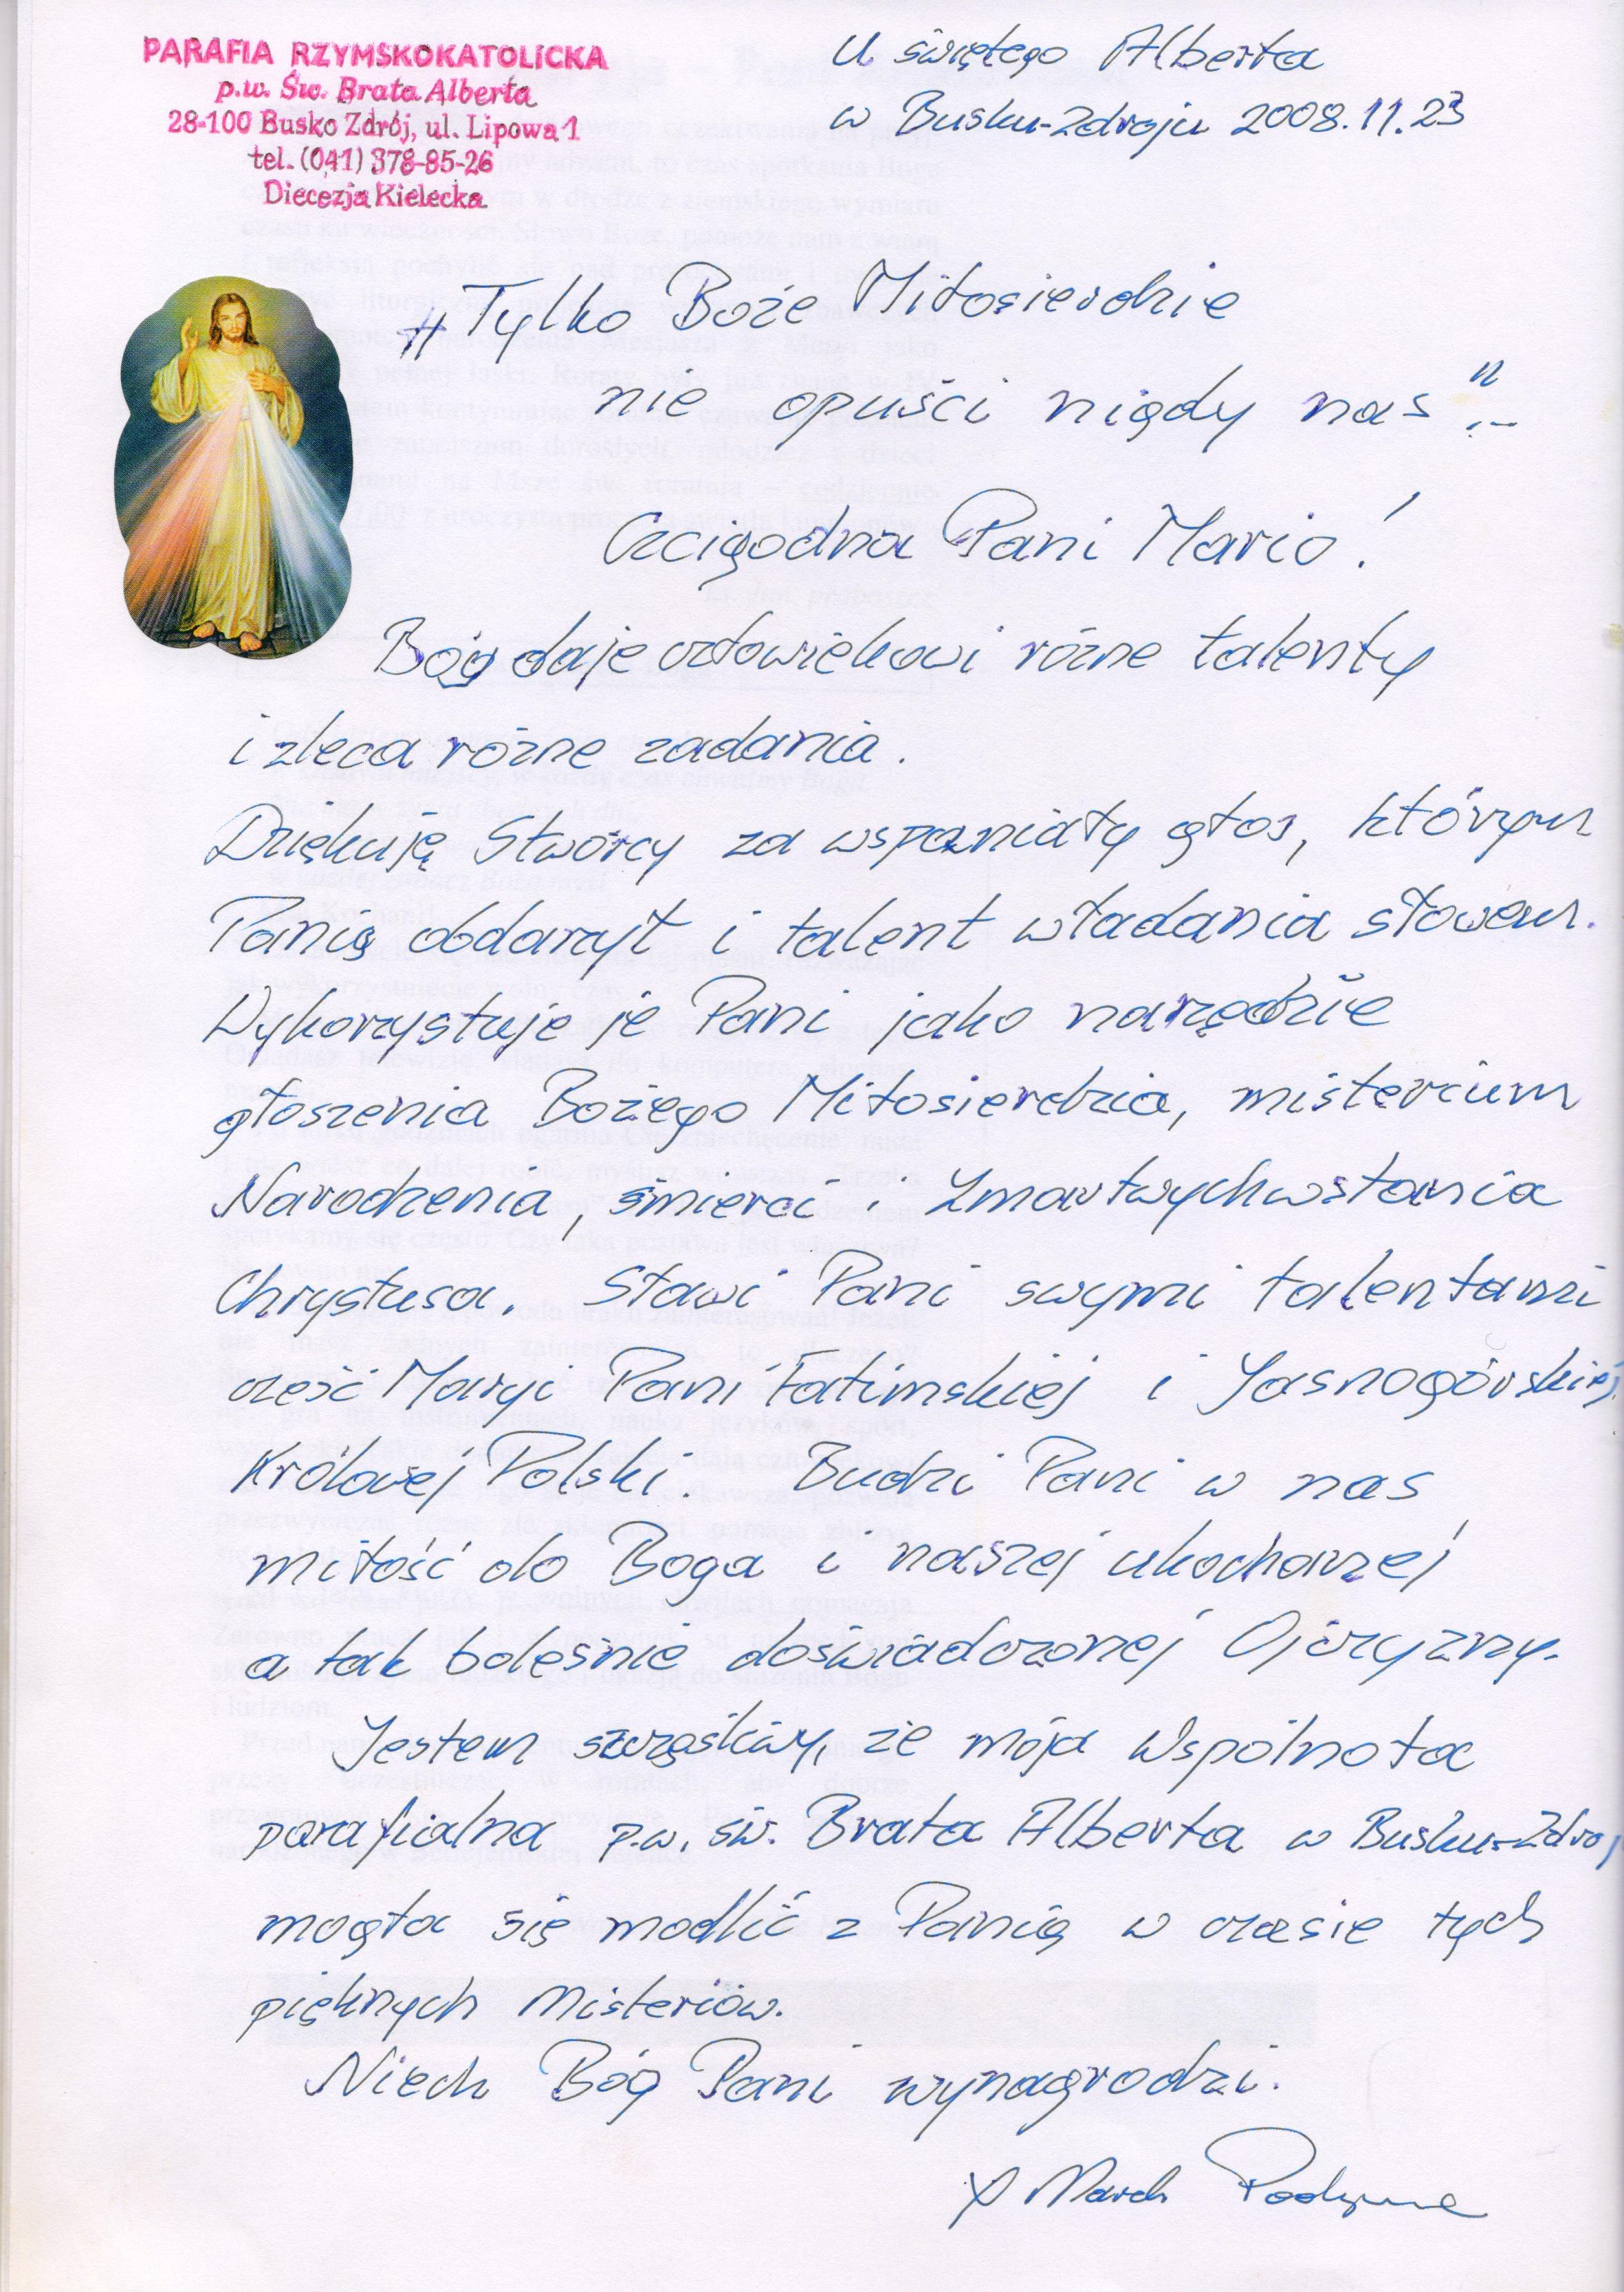 PARAFIA RZYMSKOKATOLICKA
p.w. Św. Brata Alberta
28-100 Busko Zdrój, ul. Lipowa 1
tel. (041) 378-85-26
Diecezja Kielecka
U świętego Alberta
w Busku-Zdroju 2008.11.23
"Tylko Boże Miłosierdzie
nie opuści nigdy nas"...
Czcigodna Pani Mario!
Bóg daje człowiekowi różne talenty
i zleca różne zadania.
Dziękuję Stwórcy za wspaniały głos, którym
Panią obdarzył i talent władania słowem.
Wykorzystuje je Pani jako narzędzie
głoszenia Bożego Miłosierdzia, misterium
Narodzenia, śmierci i Zmartwychwstania
Chrystusa. Sławi Pani swymi talentami
cześć Maryi Pani Fatimskiej i Jasnogórskiej
Królowej Polski. Budzi Pani w nas
miłość do Boga i naszej ukochanej
a tak boleśnie doświadczonej Ojczyzny.
Jestem szczęśliwy, że moja Wspólnota
parafialna p.w. św. Brata Alberta w Busku-Zdroj
mogła się modlić z Panią w czasie tych
pięknych Misteriów.
Niech Bóg Pani wynagrodzi.
X Marek